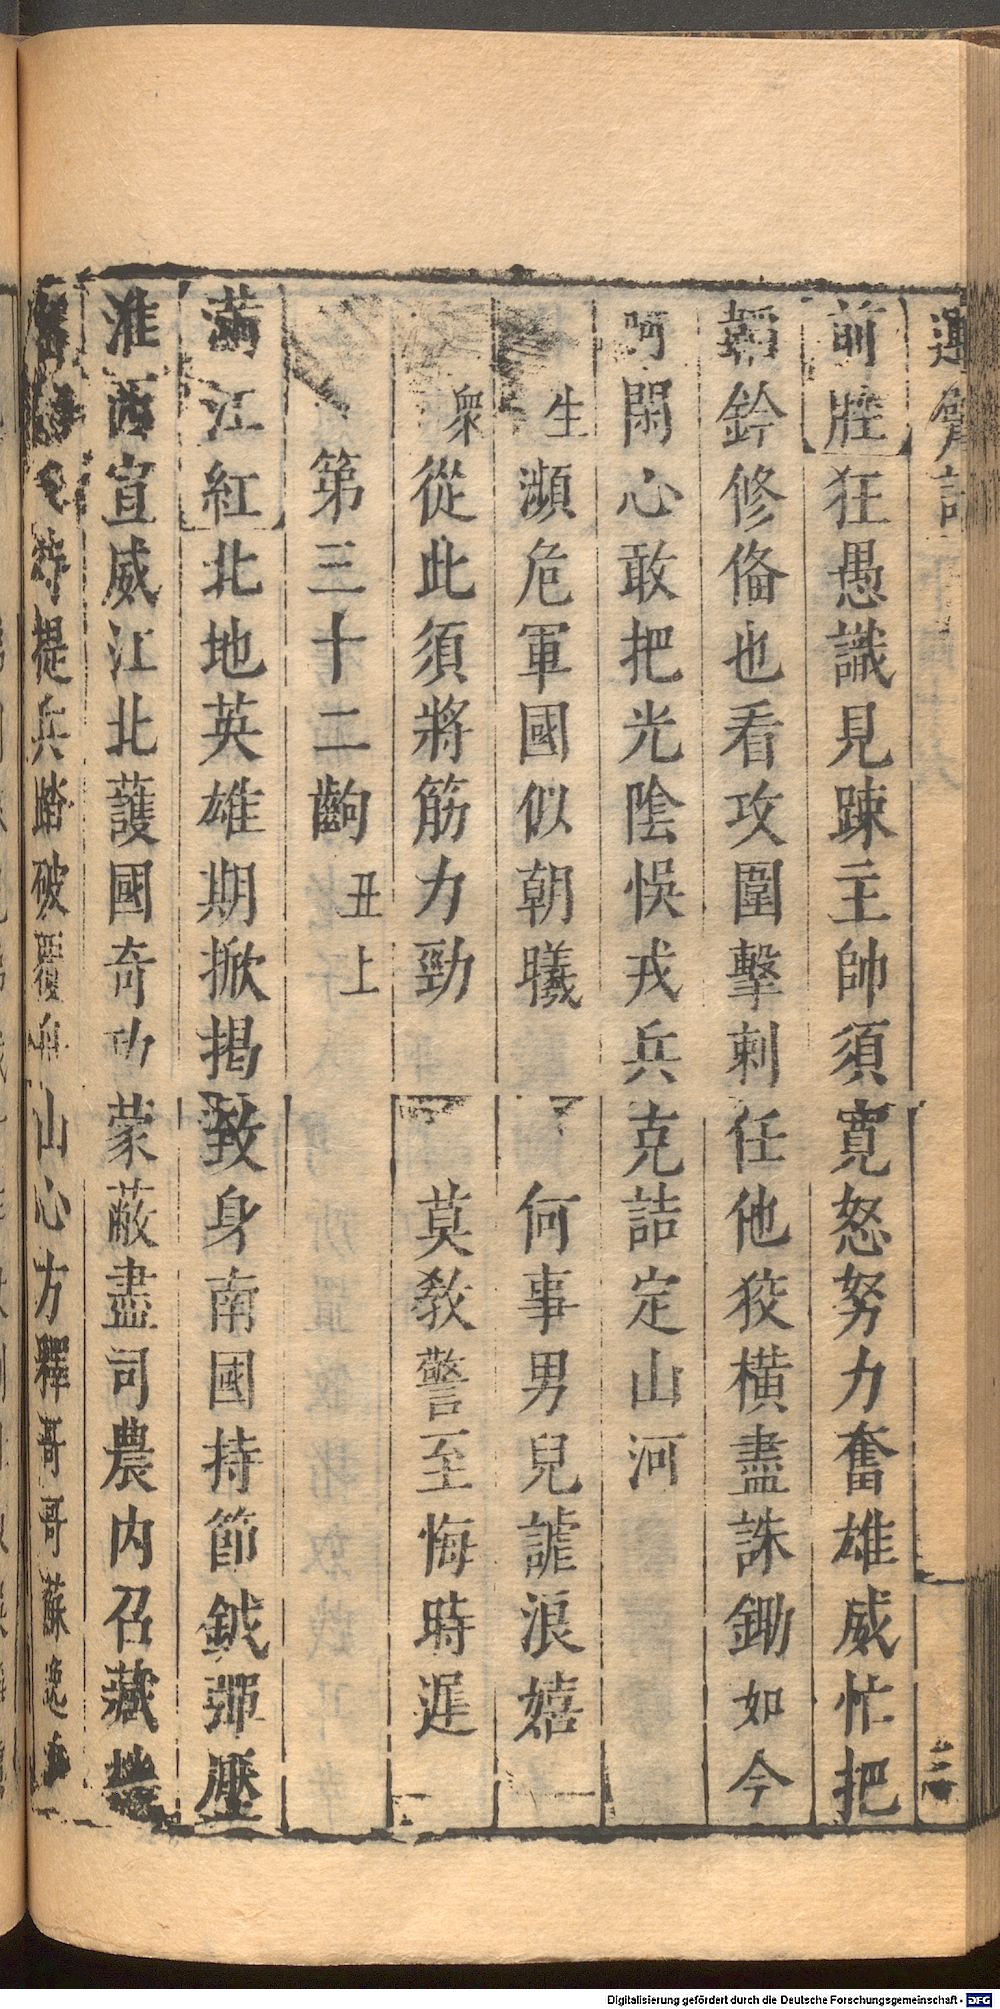 前腔狂愚識見踈主帥須寛恕努力奮雄威忙把
韜鈐修俻也看攻圍擊刺任他狡橫盡誅鋤如今
呵閑心敢把光陰悞戎兵克詰定山河
生瀕危軍國似朝曦 何事男兒謔浪嬉
衆從此須將筋力勁 莫敎警至悔時遲
第三十二齣 丑上
滿江紅北地英雄期掀揭致身南國持節鉞彈壓
淮西宣威江北護國奇功蒙蔽盡司農內召藏
提兵踏破覆舟山心方釋哥哥蘇逸
Digitalisierung gefördert durch die Deutsche Forschungsgemeinschaft - DFG